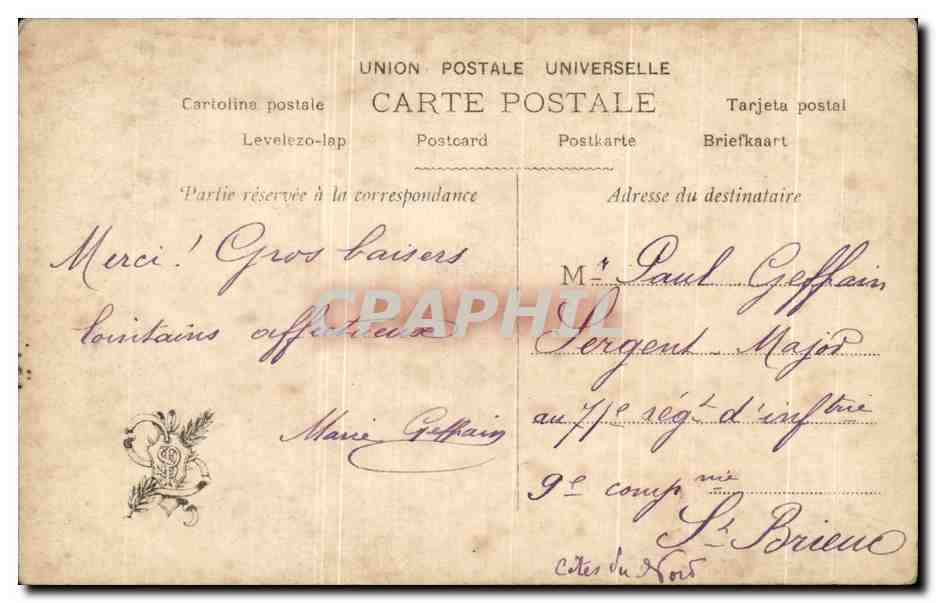 UNION POSTALE UNIVERSELLE
Cartolina postale CARTE POSTALE Tarjeta postal
Levelezo-lap Postcard Postkarte Briefkaart
Partie réservée à la correspondance
Merci! Gros baisers
lointains affectueux
Marie Geffain
Adresse du destinataire
Mr Paul Geffain
Sergent Major
au 71e régt d'inftrie
9e compnie
St Brieuc
Côtes du Nord
CPAPHIL